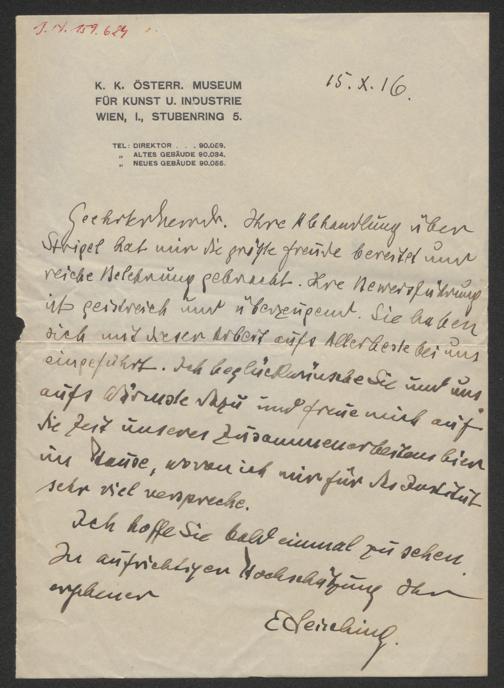 J.N. 159.624
15.X.16.
K. K. ÖSTERR. MUSEUM
FÜR KUNST U. INDUSTRIE
WIEN, I., STUBENRING 5.
TEL: DIREKTOR . . . 90.059.
„ ALTES GEBÄUDE 90.034.
„ NEUES GEBÄUDE 90.055.
Geehrter Herr Dr. Ihre Abhandlung über
Strigel hat mir die größte Freude bereitet und
reiche Belehrung gebracht. Ihre Beweisführung
ist geistreich und überzeugend. Sie haben
sich mit dieser Arbeit aufs Allerbeste bei uns
eingeführt. Ich beglückwünsche Sie und uns
aufs Wärmste dazu und freue mich auf
die Zeit unseres Zusammenarbeitens hier
im Hause, wovon ich mir für das Institut
sehr viel verspreche.
Ich hoffe Sie bald einmal zu sehen.
In aufrichtiger Hochschätzung Ihr
ergebener
ELeisching.